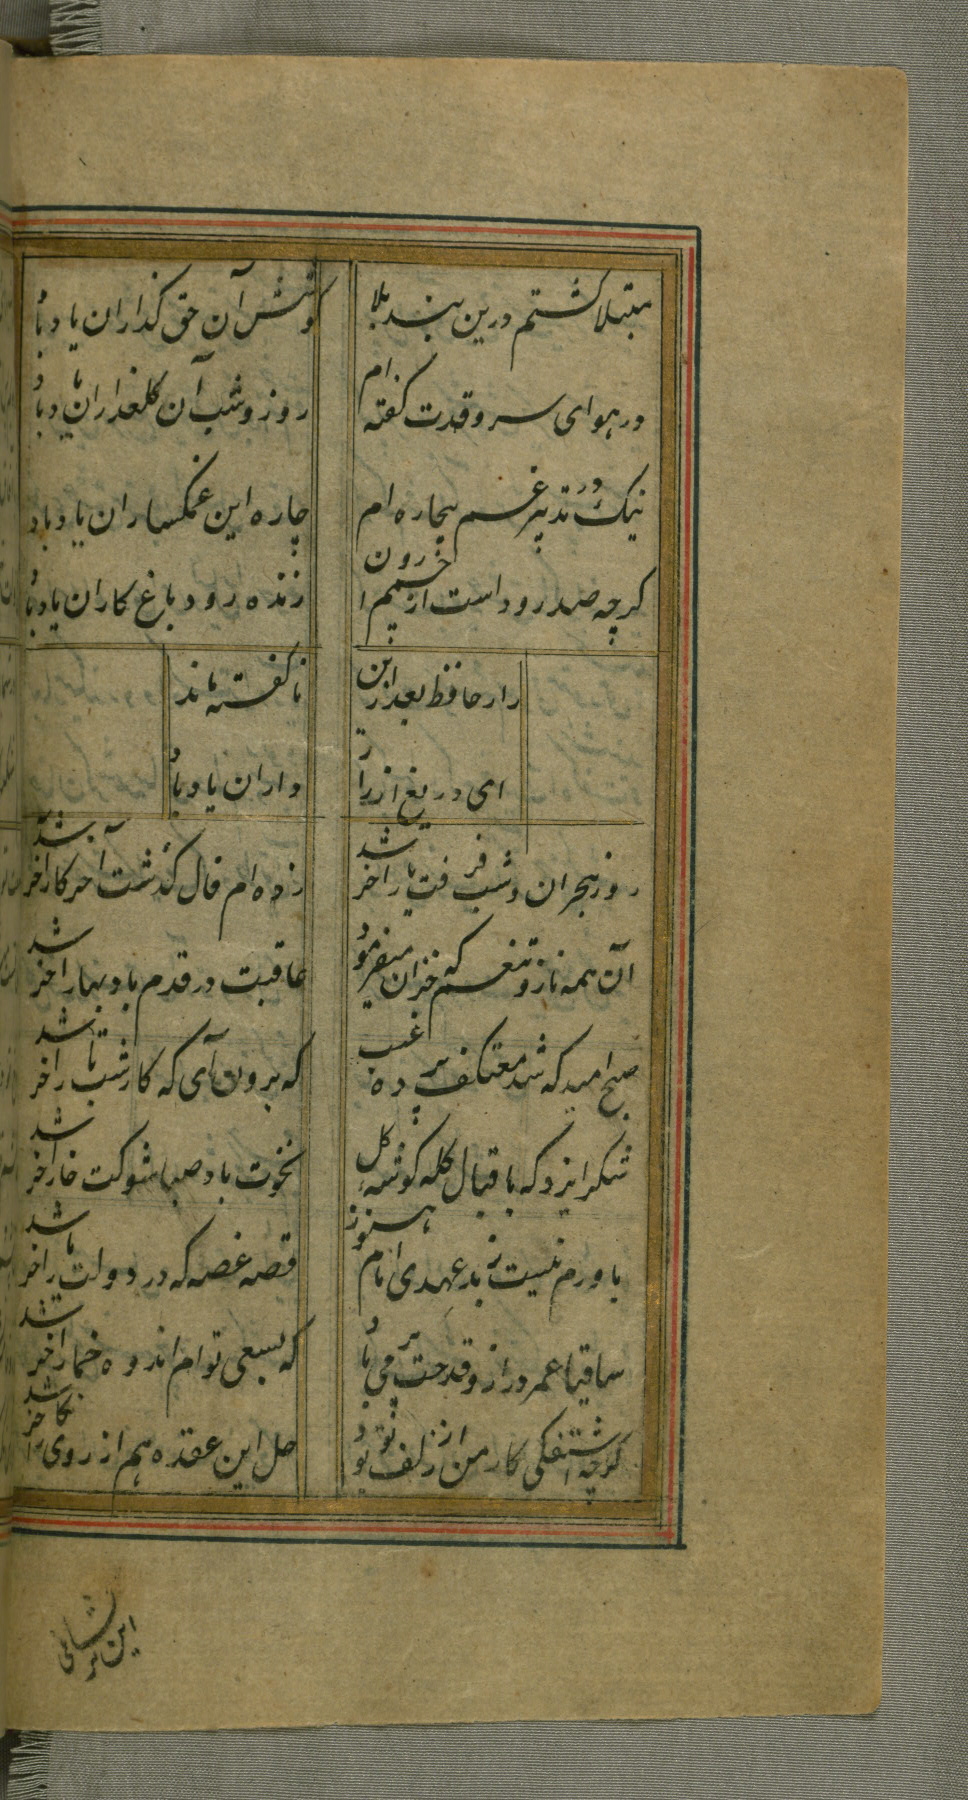 مبتلا کشتم درین بند بلا
کوشش آن حق کذاران یاد باد
در هوای سرو قدت کفته ام
روز و شب آن کلغداران یاد باد
نیک در تدبیر غم بیچاره ام
چاره این غمکساران یاد باد
کرچه صد رود است از چشمم روان
زنده رود باغ کاران یاد باد
راز حافظ بعد ازین
ناکفته ماند
ای دریغ از راز
داران یاد باد
روز هجران و شب فرقت یار آخر شد
زده ام فال کذشت آخر کار آخر شد
آن همه ناز و تنعم که خزان میفرمود
عاقبت در قدم باد بهار آخر شد
صبح امید که شد معتکف پرده غیب
که برون آی که کار شب تار آخر شد
شکر ایزد که باقبال کله کوشه کل
نخوت باد صبا شوکت خار آخر شد
باورم نیست ز بدعهدی ایام هنوز
قصه غصه که در دولت یار آخر شد
ساقیا عمر دراز و قدحت پر می باد
که بسعی توام اندوه خمار آخر شد
کرچه آشفتکی کار من از زلف تو بود
حل این عقده هم از روی نکار آخر شد